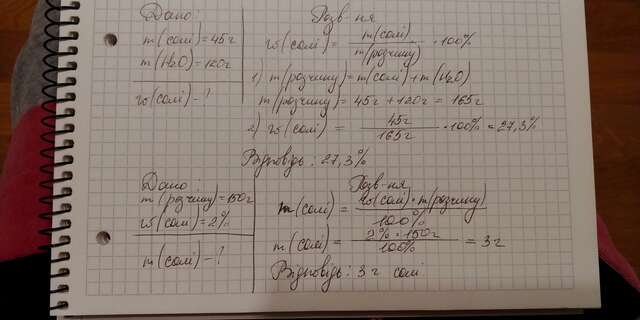 Дано:
m(солі)=45г
m(H2O)=120г
w(солі)-?
Розв-ня
w(солі) = m(солі) / m(розчину) · 100%
1) m(розчину)=m(солі)+m(H2O)
m(розчину)=45г+120г=165г
2) w(солі) = 45г / 165г · 100% = 27,3%
Відповідь: 27,3%
Дано:
m(розчину)=150г
w(солі)=2%
m(солі)-?
Розв-ня
m(солі) = w(солі) · m(розчину) / 100%
m(солі) = 2% · 150г / 100% = 3г
Відповідь: 3г солі